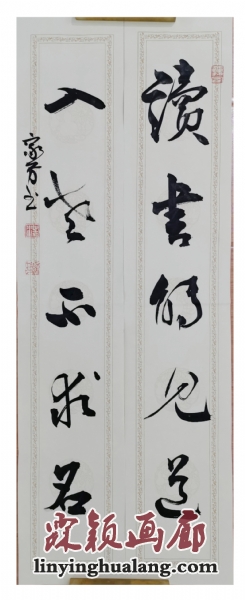 讀書能見道
入世不求名
霖颖画廊
linyinghualang.com